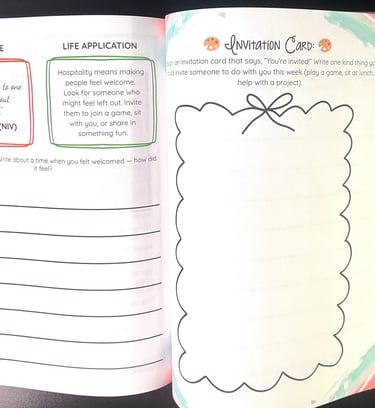 E
LIFE APPLICATION
to one
out
(NIV)
Hospitality means making
people feel welcome.
Look for someone who
might feel left out. Invite
them to join a game, sit
with you, or share in
something fun.
write about a time when you felt welcomed — how did
it feel?
INVITATION CARD:
an invitation card that says, "You're invited!" Write one kind thing
invite someone to do with you this week (play a game, sit at lunch,
help with a project).